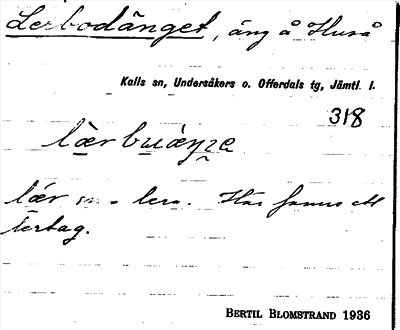 Lerbodänget, äng å Huså
Kalls sn, Undersåkers o. Offerdals tg, Jämtl. l.
318
lerbuáŋɲe
lér sn. = lera. Här fanns ett
lertag.
BERTIL BLOMSTRAND 1936